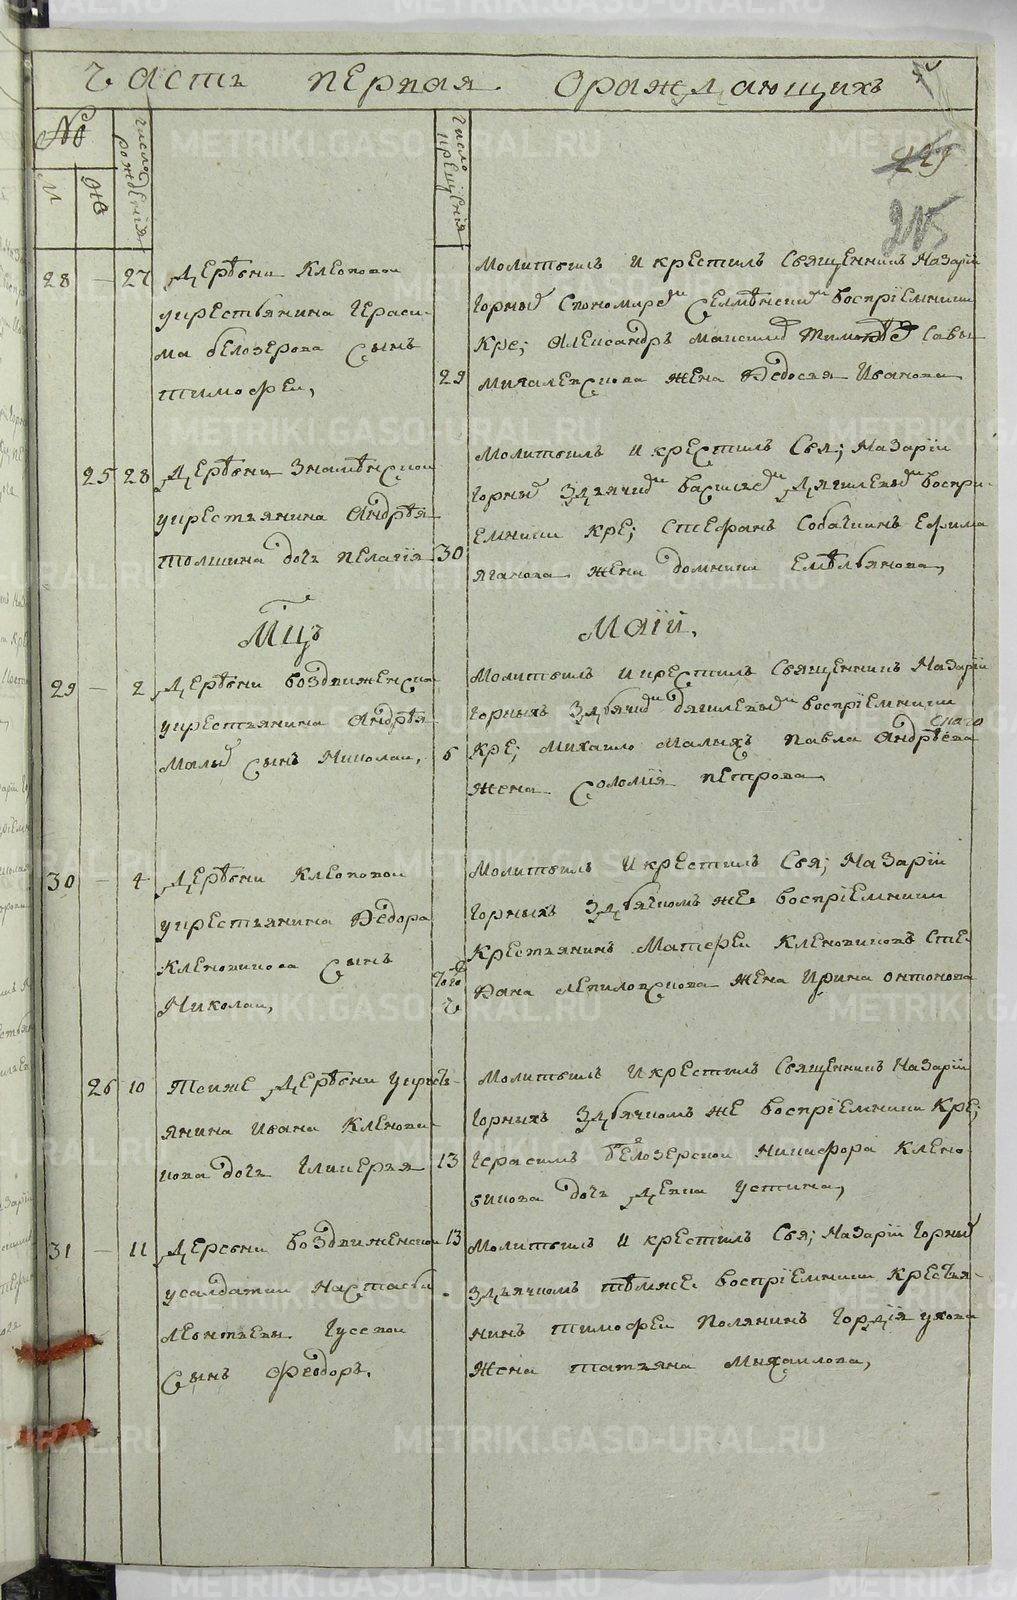 Часть первая о раждающихъ
229
215
№
число рождения
число крещения
м
ж
28 — 27 Деревни Клеоповои
укрестьянина Гераси-
ма белозерова Сынъ
тимофеи,
29
Молитвилъ и крестилъ Священникъ Назарiи
Горныи Спономаремъ воспрiемники
Кре; Александръ Савы
жена Федосья Иванова
25 28 Деревни Знаменскои
укрестьянина Андрея
толшина дочь пелагiя 30
Молитвилъ и крестилъ Свя; Назарiи
Горныи Здьячкомъ василемъ Дягилевымъ воспрi-
емники кре; Стефанъ Собакинъ Ефима
яганова жена домника Емельянова,
Мцъ Маiи,
29 — 2 Деревни воздвиженскои
укрестьянина Андрея
Малыхъ Сынъ Николаи, 6
Молитвилъ и крестилъ Священникъ Назарiи
Горныхъ Здьячкомъ дягилевымъ воспрiемники
Кре; Михаило Малыхъ павла Андреевскаго
жена Соломiя петрова
30 — 4 Деревни Клеоповои
укрестьянина Федора
Кленовикова Сынъ
Николаи,
того ж
ч
Молитвилъ и крестилъ Свя; Назарiи
Горныхъ Здьячкомъ же воспрiемники
Крестьянинъ Матфеи Кленовиковъ Сте-
фана жена Ирина онтонова
26 10 Тоиже Деревни укресть-
янина Ивана Кленови-
кова дочь Гликерья 13
Молитвилъ и крестилъ Священникъ Назарiи
Горныхъ Здьячкомъ же воспрiемники Кре;
Герасимъ белозерскои Никифора Клено-
викова дочь Девка устина,
31 — 11 Деревни воздвиженскои 13
усалдатки Настасьи
леонтьевы Гусевои
Сынъ Феодоръ.
Молитвилъ и крестилъ Свя; Назарiи Горныи
Здьячкомъ темже воспрiемники Крестья-
нинъ тимофеи полянинъ Гордiя ухова
жена татьяна Михаилова,
METRIKI.GASO-URAL.RU